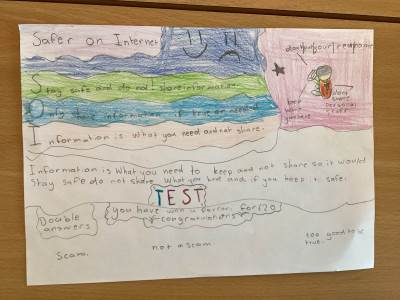 Safer on Internet
Stay safe and do not share information.
Only share information if true or needed
Information is what you need and not share.
keep
safe
dont
share
personal
Information is what you need to keep and not share so it would
stay safe do not share what you have and if you keep it safe.
TEST
Double
answers
you have won a for £20
congratulations
Scam.
not a scam
too good to be
true.